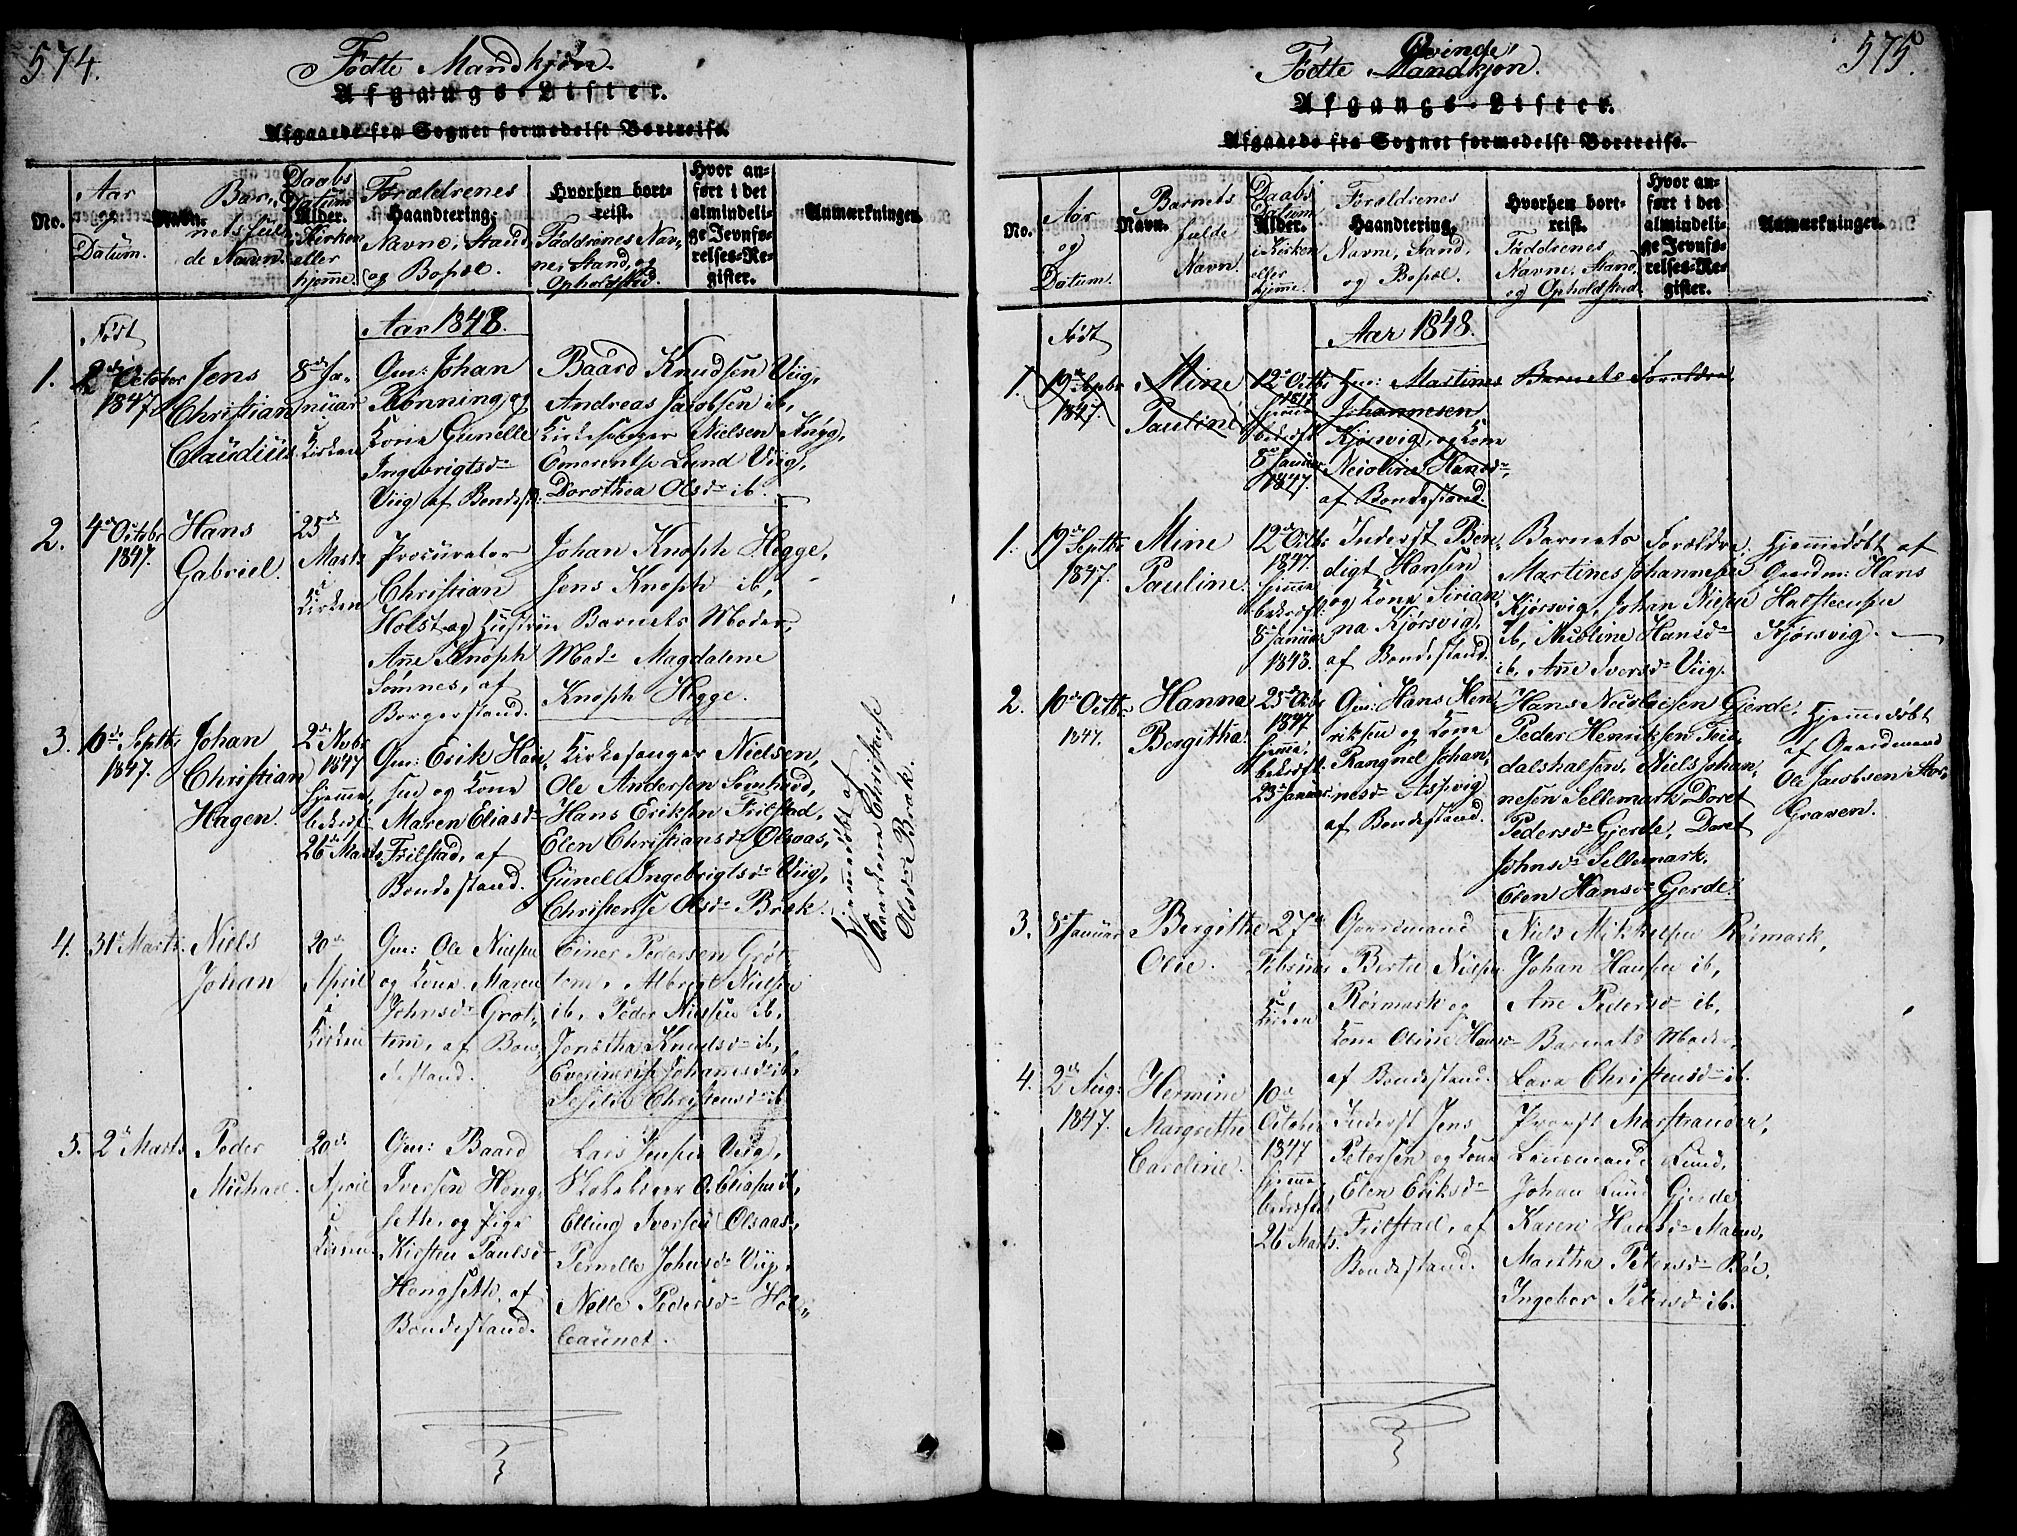 574.
Födte Mandkjön.
Afgangs-Lister.
Afgaaede fra Sognet formedelst Bortreise.
No.
Aar og Datum.
Navn. Barnets fulde Navn.
Alder. Daabs Datum i Kirken eller hjemme.
Forældrenes Haandtering. Navne, Stand og Bopæl.
Hvorhen bortreist. Faddrenes Navne, Stand, og Opholdsted.
Hvor anført i det almindelige Jevnførelses-Register.
Anmærkninger.
Født
Aar 1848.
1. 2de October 1847
Jens Christian Claudius
8de Januar i Kirken
Gm: Johan Rønning og Kone Gunelle Ingebrigtsdr Viig af Bondest:
Baard Knudsen Viig,
Andreas Jacobsen ib,
Kirkesanger Nielsen Myg,
Emerentse Lund Viig,
Dorothea Olsdr ib.
2. 4de Octobr 1847.
Hans Gabriel.
25de Marts i Kirken
Procurator Christian Holst og Hustrue Anne Knoph Sømnes, af Borgerstand.
Johan Knoph Hegge,
Jens Knoph ib,
Barnets Moder,
Mad: Magdalene
Knoph Hegge.
3. 6de Septbr 1847.
Johan Christian Hagen.
2de Nvbr 1847 hjemme, bekræf: 26de Marts
Gm: Erik Hansen og Kone Maren Eliasdr Frilstad, af Bondestand.
Kirkesanger Nielsen,
Ole Andersen Sømhind,
Hans Eriksen Frilstad,
Elen Christiansdr Olsaas,
Gunel Ingebrigtsdr Viig,
Christense Olsdr Bræk.
Hjemmedöbt af
Gaardkone Christense
Olsdr Bræk.
4. 31te Marts
Niels Johan
20de April i Kirken
Gm: Ole Nielsen og Kone Maren Johnsdr Grøttem, af Bondestand.
Einer Pedersen Grøttem, Albrigt Nielsen
ib, Peder Nielsen ib,
Jonetha Knudsdr ib,
Johansdr ib,
Christensdr ib.
5. 2de Marts
Peder Michael.
20de April i Kirken
Gm: Baard Iversen Hongseth, og Pige Kirsten Paulsdr Hongseth, af Bondestand.
Lars Jensen Viig,
O. Eliasen ib,
Elling Iversen Olsaas,
Pernelle Johnsdr Viig,
Nelle Pedersdr Hol-

575.
Födte Qvinde Mandkjøn.
Afgangs-Lister.
Afgaaede fra Sognet formedelst Bortreise.
No.
Aar og Datum.
Navn. Barnets fulde Navn.
Alder. Daabs Datum i Kirken eller hjemme.
Forældrenes Haandtering. Navne, Stand, og Bopæl.
Hvorhen bortreist. Faddrenes Navne, Stand, og Opholdsted.
Hvor anført i det almindelige Jevnførelses-Register.
Anmærkninger.
Født
Aar 1848.
1. 19de Septbr 1847.
Mine Pauline
12de Octbr 1847 hjemme bekræft. 8de Januar 1847.
Gm: Martines Johannesen Kjørsvig, og Kone Nicoline Hansdr, af Bondestand.
Barnets Forældre
1. 19de Septbr 1847.
Mine Pauline.
12de Octbr 1847. hjemme bekræft: 8de Januar 1848.
Inderst Bendigt Hansen og Kone Sirianna Kjørsvig, af Bondestand.
Barnets Forældre,
Martines Johannesen
Kjørsvig, Johan Nielsen
ib, Nicoline Hansdr
ib, Anne Iversdr Viig.
Hjemmedøbt af Gaardm: Hans Halsteensen Kjørsvig.
2. 10de Octbr 1847.
Hanna Bergitha
25de Octbr 1847 hjemme, bekræft. 23de Januar
Gm: Hans Henriksen og Kone Rangnel Johannesdr Aspvig af Bondestand.
Hans Nicolaisen Gjerde,
Peder Henriksen
Niels Johannesen Sellemark, Doret
Pedersdr Gjerde, Doret
Johnsdr Sellemark,
Elen Hansdr Gjerde.
Hjemmedøbt af Gaardmand Ole Jacobsen Store Graven.
3. 8de Januar
Bergithe Olie.
27de Februar i Kirken
Gaardmand Bertel Nielsen Rørmark og Kone Oline Hansdr af Bondestand.
Niels Mikkelsen Rørmark,
Johan Hansen ib,
Anne Pedersdr ib.
Barnets Moder,
Lava Christensdr ib.
4. 2de Aug: 1847.
Hermine Margrethe Caroline.
10de October 1847 hjemme, bekræftet 26 Marts.
Inderst Jens Petersen og Kone Elen Eriksdr Frilstad, af Bondestand.
Provst Marstrander,
Lensmand Lund,
Johan Lund Gjerde
Karen Hansdr Malm,
Martha Petersdr Bøe,
Ingebor Petersdr ib.